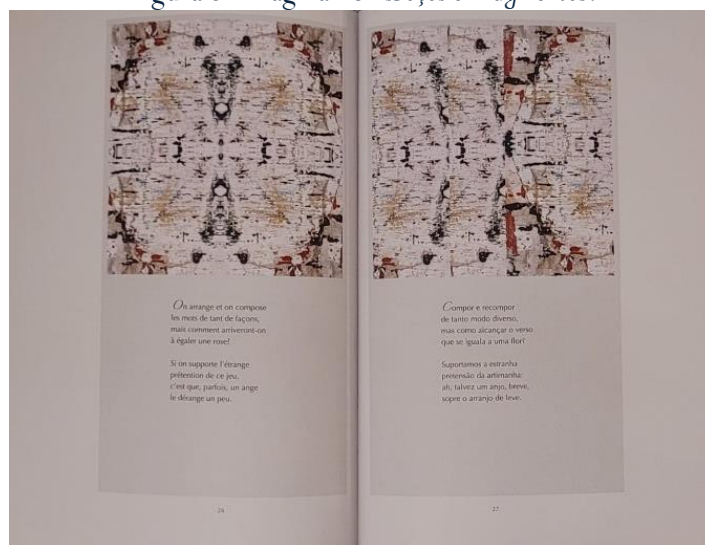 On arrange et on compose
les mots de tant de façons,
mais comment arriveront-on
à égaler une rose!
Si on supporte l'étrange
prétention de ce jeu,
c'est que, parfois, un ange
le dérange un peu.
26
Compor e recompor
de tanto modo diverso,
mas como alcançar o verso
que se iguala a uma flor?
Suportamos a estranha
pretensão da artimanha:
ah, talvez um anjo, breve,
sopre o arranjo de leve.
27